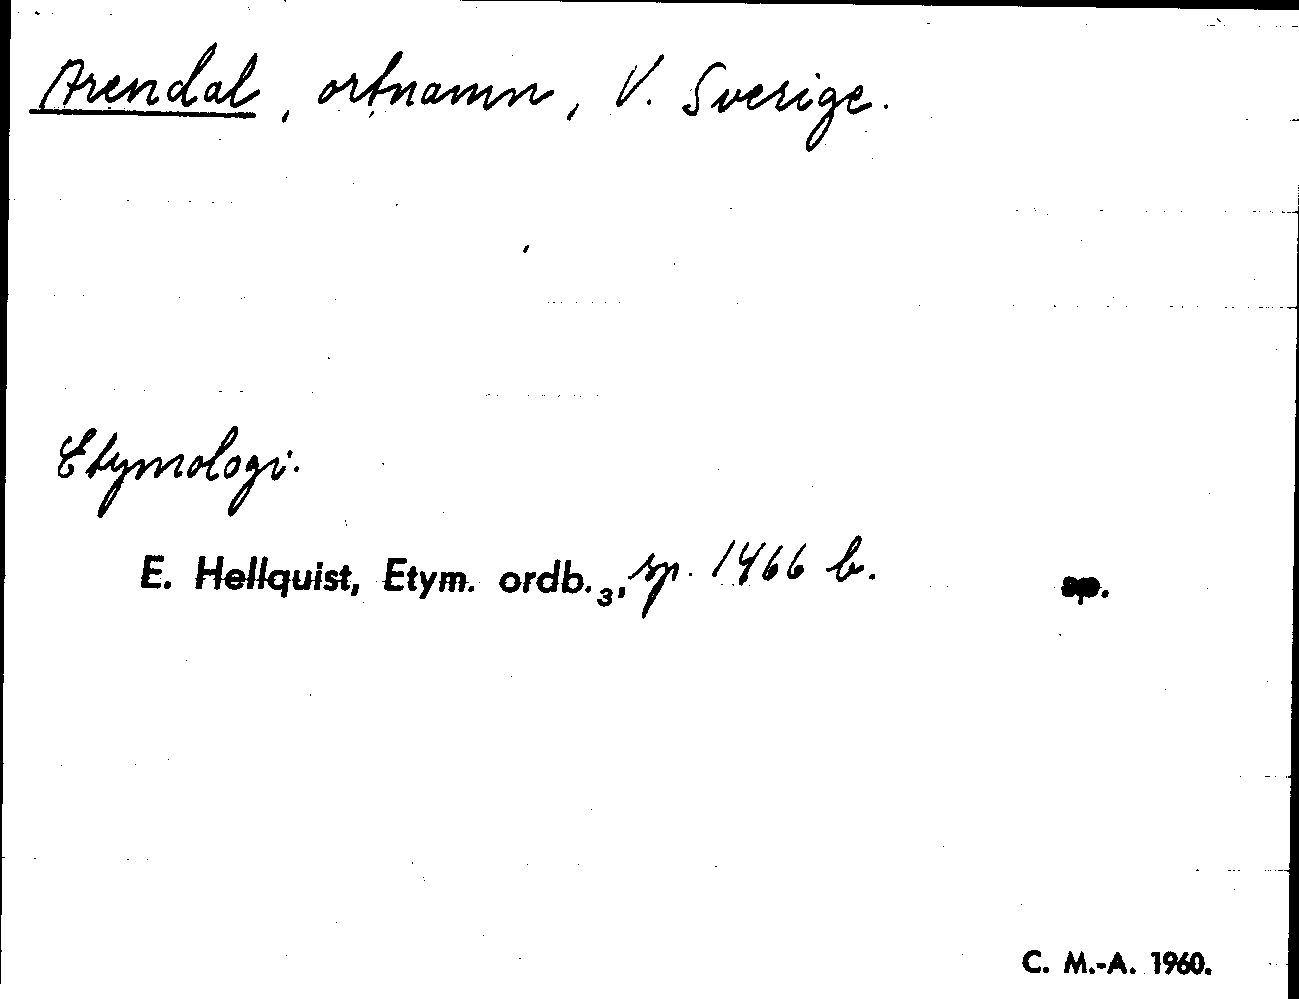 Arendal, ortnamn, V. Sverige.
Etymologi.
E. Hellquist, Etym. ordb.₃, sp. 1466 b. sp.
C. M.-A. 1960.